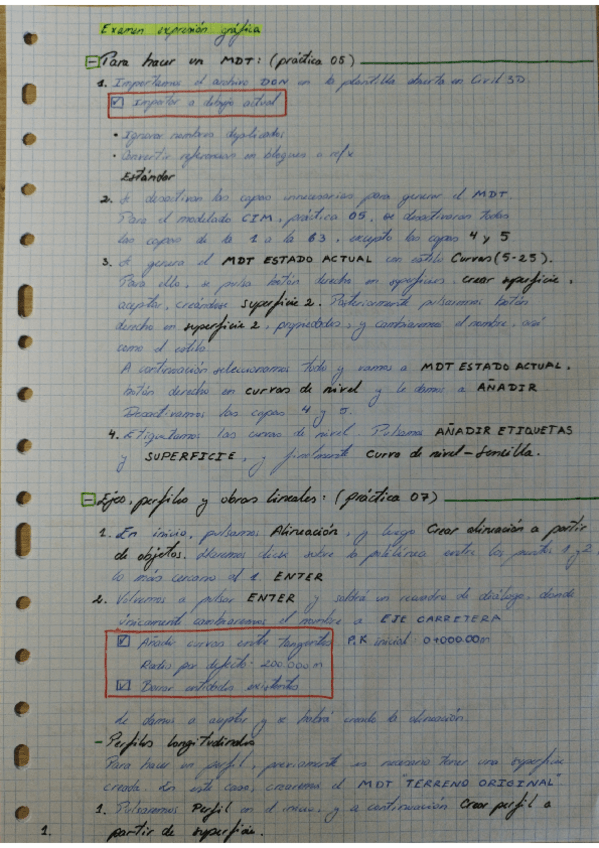 Examen expresión gráfica
Para hacer un MDT: (práctica 05)
1. Importamos el archivo DGN en la plantilla abierta en Civil 3D.
Importar a dibujo actual
• Ignorar nombres duplicados
• Convertir referencias en bloques o refx
Estándar
2. Se desactivan las capas innecesarias para generar el MDT.
Para el modelado CIM, práctica 05, se desactivarán todas
las capas de la 1 a la 63, excepto las capas 4 y 5
3. Se genera el MDT ESTADO ACTUAL con estilo Curvas (5-25).
Para ello, se pulsa botón derecho en superficies, crear superficie,
aceptar, creándose superficie 2. Posteriormente pulsaremos botón
derecho en superficie 2, propiedades, y cambiaremos el nombre, así
como el estilo.
A continuación seleccionamos todo y vamos a MDT ESTADO ACTUAL,
botón derecho en curvas de nivel y le damos a AÑADIR
Desactivamos las capas 4 y 5.
4. Etiquetamos las curvas de nivel. Pulsamos AÑADIR ETIQUETAS
y SUPERFICIE, y finalmente Curva de nivel - Sencilla.
Ejes, perfiles y obras lineales: (práctica 07)
1. En inicio, pulsamos Alineación, y luego Crear alineación a partir
de objetos. Haremos click sobre la polilínea entre los puntos 1 y 2,
lo más cercano al 1. ENTER
2. Volvemos a pulsar ENTER y saldrá un recuadro de diálogo, donde
únicamente cambiaremos el nombre a EJE CARRETERA
Añadir curvas entre tangentes P.K inicial: 0+000.00m
Radio por defecto: 200.000m
Borrar entidades existentes
Le damos a aceptar y se habrá creado la alineación
- Perfiles longitudinales
Para hacer un perfil, previamente es necesario tener una superficie
creada. En este caso, crearemos el MDT "TERRENO ORIGINAL"
1. Pulsaremos Perfil en el inicio, y a continuación Crear perfil a
partir de superficie.
1.